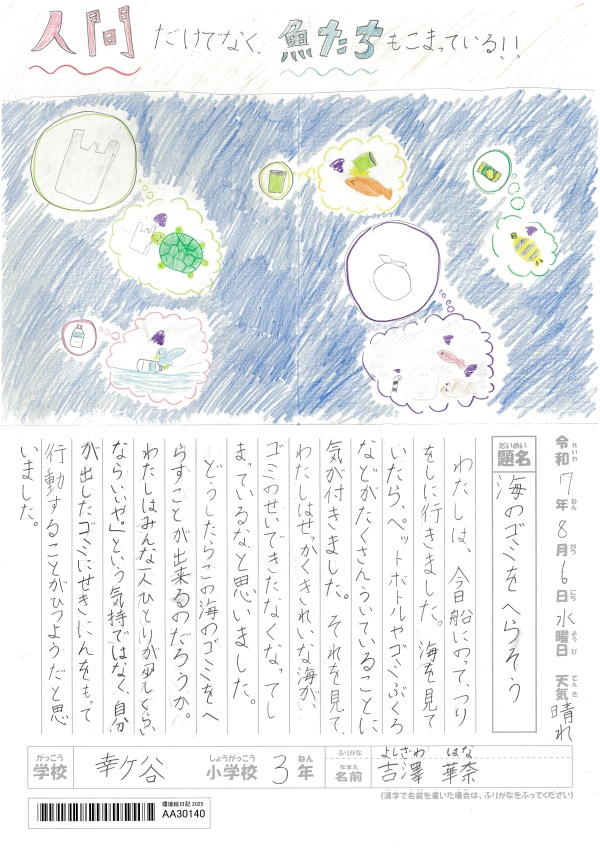 人間だけでなく、魚たちもこまっている!!
令和7年8月6日水曜日 天気 晴れ
れいわ ねん がつ にち ようび てんき
だいめい
題名 海のゴミをへらそう
わたしは、今日船にのって、つり
をしに行きました。海を見て
いたら、ペットボトルやゴミぶくろ
などがたくさんういていることに
気が付きました。それを見て、
わたしはせっかくきれいな海が、
ゴミのせいできたなくなってし
まっているなと思いました。
どうしたらこの海のゴミをへ
らすことが出来るのだろうか。
わたしはみんな一人ひとりが「少しぐらい
ならいいや。」という気持ではなく、自分
が出したゴミにせきにんをもって
行動することがひつようだと思
いました。
がっこう しょうがっこう ねん
学校 幸ケ谷 小学校 3年
ふりがな よしざわ はな
なまえ
名前 吉澤 華奈
(漢字で名前を書いた場合は、ふりがなをふってください)
環境絵日記 2025
AA30140